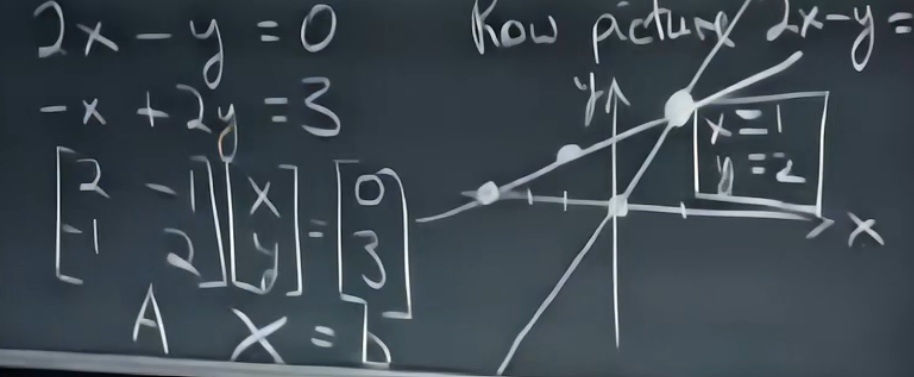 2x - y = 0
-x + 2y = 3
[2 -1] [x] = [0]
[-1 2] [y] [3]
A X = b
Row picture 2x-y=
y
x=1
y=2
x